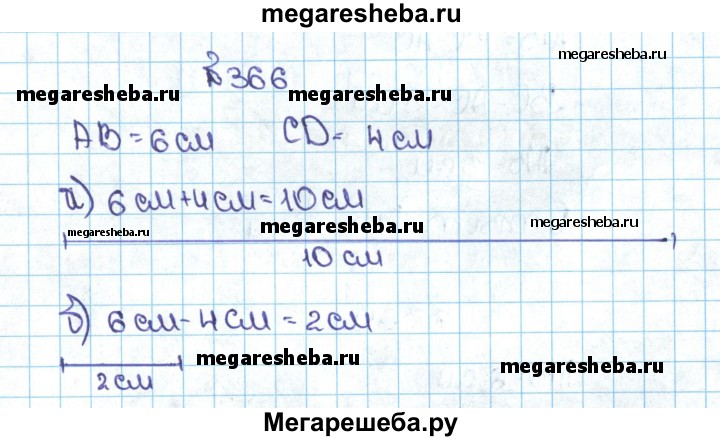 megaresheba.ru
megaresheba.ru
№366
megaresheba.ru megaresheba.ru
AB=6см CD= 4см
а) 6см+4см=10см
megaresheba.ru megaresheba.ru megaresheba.ru
10 см
б) 6см-4см=2см
megaresheba.ru megaresheba.ru
2см
Мегарешеба.ру